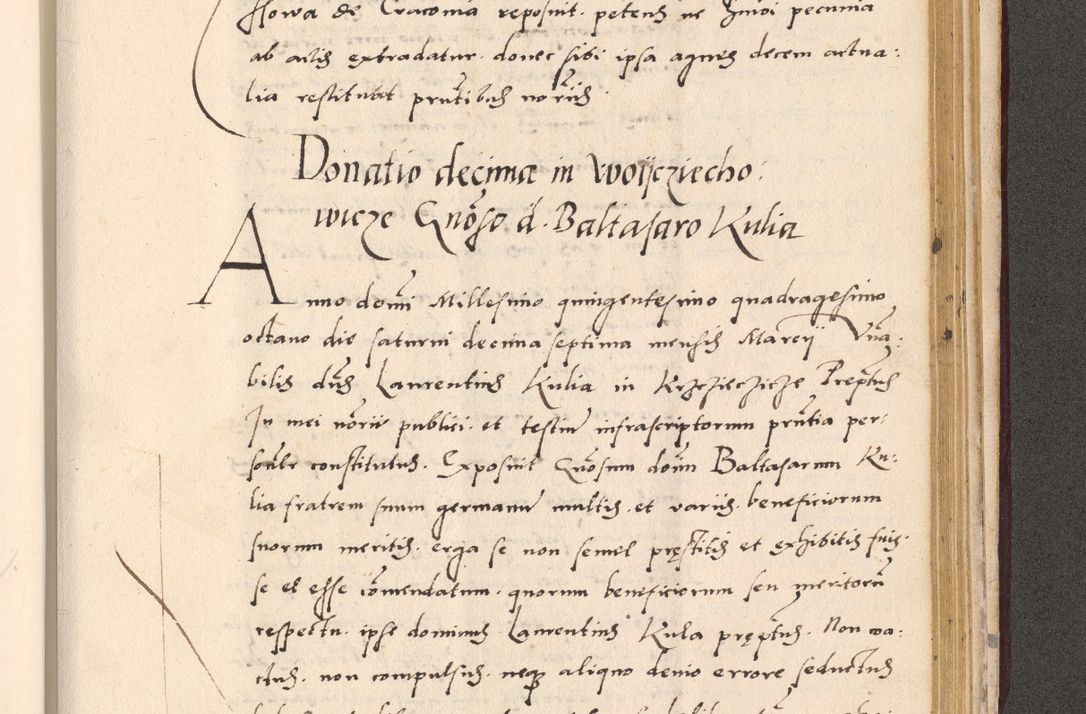 stowa de Cracovia reposuit. petens ne Immoi pecunia
ab actis extradatur. donec sibi ipsa agnes decem actua:
lia restituat pñtibus noriis
Donatio decima in Woijcziecho:
wicze Gñoso d. Baltasaro Kulia
Anno domi Millesimo quingentesimo quadragesimo
octavo die saturni decima septima mensis Marcij Vña:
bilis dñs Laurentius Kulia in Krzczieczicze Prepttus
In mei notrii publici et testium infrascriptorum pñtia per:
sonlr constitutus. Exposuit Gñosum domi Baltasarum Ku:
lia fratrem suum germanum multis. et variis. beneficiorum
suorum meritis. erga se non semel pręstitis et exhibitis fuis:
se et esse comendatum. quorum beneficiorum seu meritorum
respectu. ipse dominus Laurentius Kula pręptus. Non coa:
ctus. non compulsus. neqz aliquo devio errore seductus